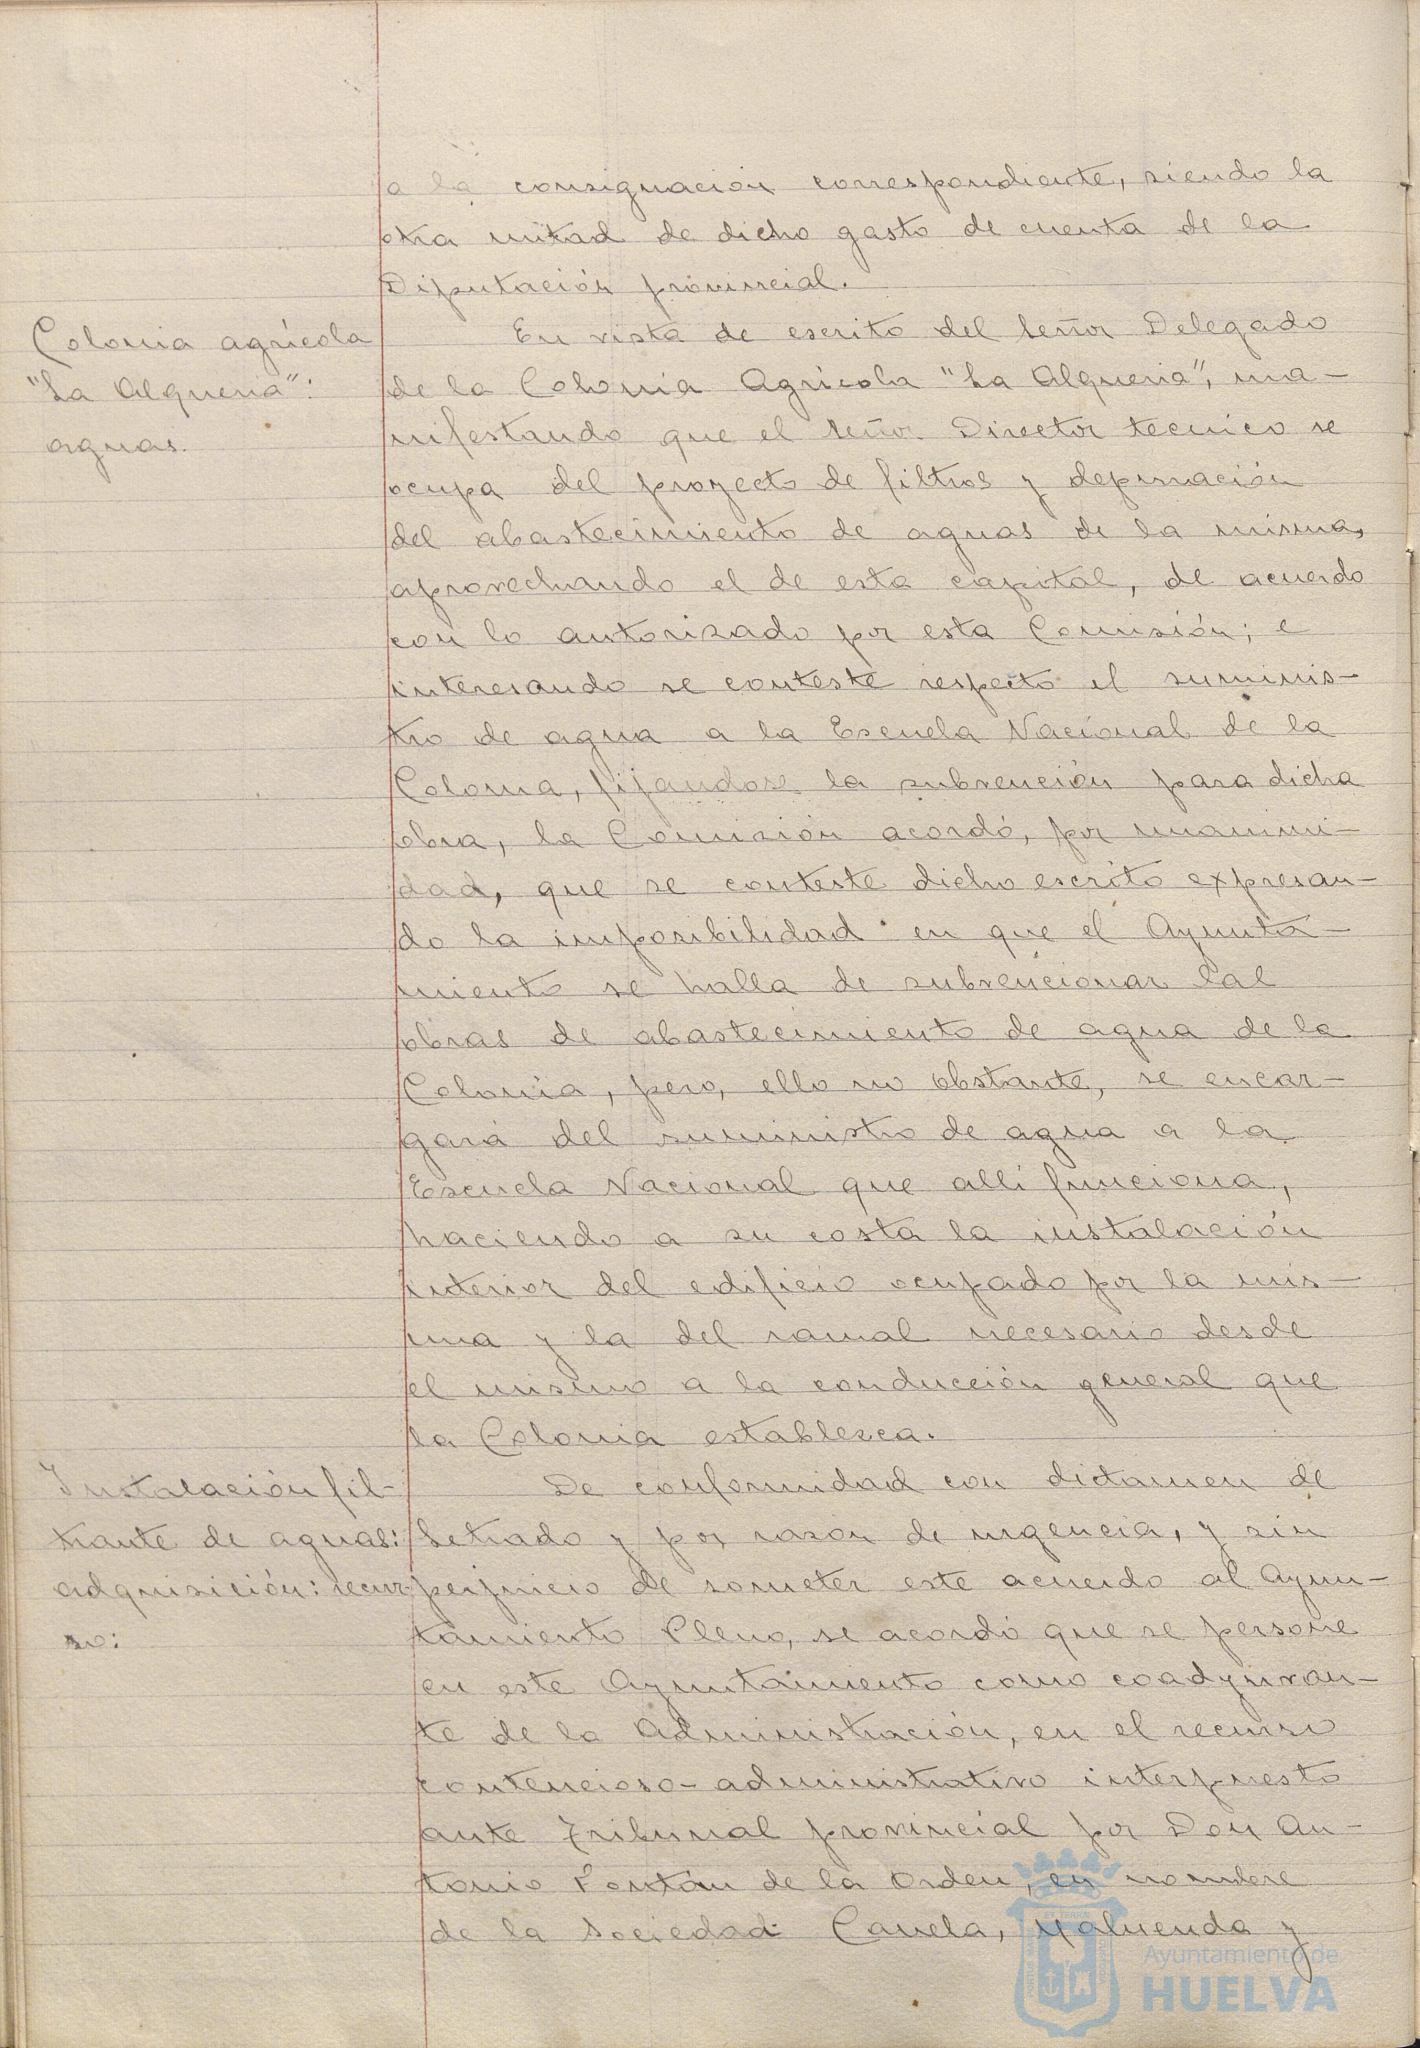 a la consignación correspondiente, siendo la
otra mitad de dicho gasto de cuenta de la
Diputación provincial.
Colonia agrícola
"La Alqueria":
aguas.
En vista de escrito del Señor Delegado
de la Colonia Agrícola "La Alqueria", ma-
nifestando que el Señor Director técnico se
ocupa del proyecto de filtros y depuración
del abastecimiento de aguas de la misma,
aprovechando el de esta capital, de acuerdo
con lo autorizado por esta Comisión; e
interesando se conteste respecto el suminis-
tro de agua a la Escuela Nacional de la
Colonia, fijandose la subvención para dicha
obra, la Comisión acordó, por unanimi-
dad, que se conteste dicho escrito expresan-
do la imposibilidad en que el Ayunta-
miento se halla de subvencionar las
obras de abastecimiento de agua de la
Colonia, pero, ello no obstante, se encar-
gará del suministro de agua a la
Escuela Nacional que allí funciona,
haciendo a su costa la instalación
interior del edificio ocupado por la mis-
ma y la del ramal necesario desde
el mismo a la conducción general que
la Colonia establezca.
Instalación fil-
trante de aguas:
adquisición: recur-
so:
De conformidad con dictamen de
Letrado y por razón de urgencia, y sin
perjuicio de someter este acuerdo al Ayun-
tamiento Pleno, se acordó que se persone
en este Ayuntamiento como coadyuvan-
te de la Administración, en el recurso
contencioso-administrativo interpuesto
ante Tribunal provincial por Don An-
tonio Pontán de la Orden, en nombre
de la Sociedad Canela, Maluenda y
Ayuntamiento de
HUELVA